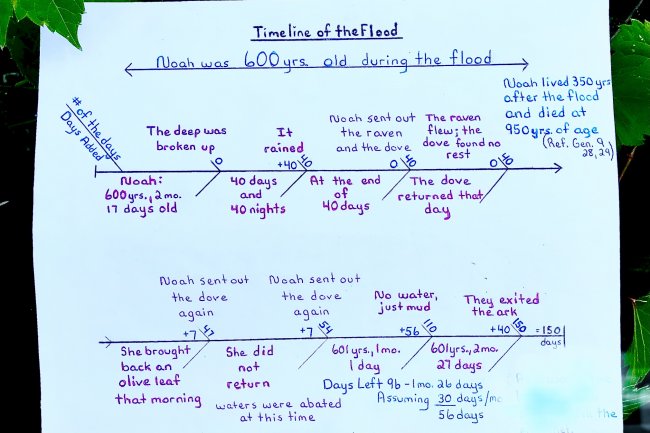 Timeline of the Flood
Noah was 600 yrs. old during the flood
Noah lived 350 yrs
after the flood
and died at
950 yrs. of age
(Ref. Gen. 9
28,29)
# of the days
Days Added
The deep was
broken up
0
It
rained
+40 40
Noah sent out
the raven
and the dove
0 40
The raven
flew; the
dove found no
rest
0 40
Noah:
600 yrs., 2 mo.
17 days old
40 days
and
40 nights
At the end
of
40 days
The dove
returned that
day
Noah sent out
the dove
again
+7 47
Noah sent out
the dove
again
+7 54
No water,
just mud
+56 110
They exited
the ark
+40 150
=150
days
She brought
back an
olive leaf
that morning
She did
not
return
waters were abated
at this time
601 yrs., 1 mo.
1 day
601 yrs., 2 mo.
27 days
Days Left 96 - 1 mo. 26 days
Assuming 30 days/mo
56 days
the